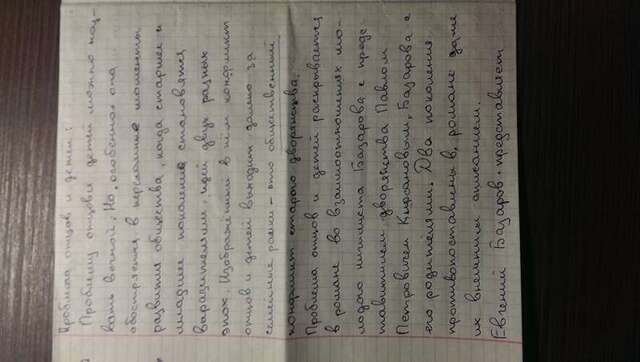 Проблема отцов и детей:
Проблему отцов и детей можно наз-
вать вечной. Но особенно она
обостряется в переломные моменты
развития общества, когда старшее и
младшее поколения становятся
выразителями идей двух разных
эпох. Изображённый в нём конфликт
отцов и детей выходит далеко за
семейные рамки - это общественный
конфликт старого дворянства.
Проблема отцов и детей раскрывается
в романе во взаимоотношениях мо-
лодого нигилиста Базарова с предс-
тавителем дворянства Павлом
Петровичем Кирсановым, Базарова с
его родителями. Два поколения
противопоставлены в романе даже
их внешним описанием.
Евгений Базаров предстаёт